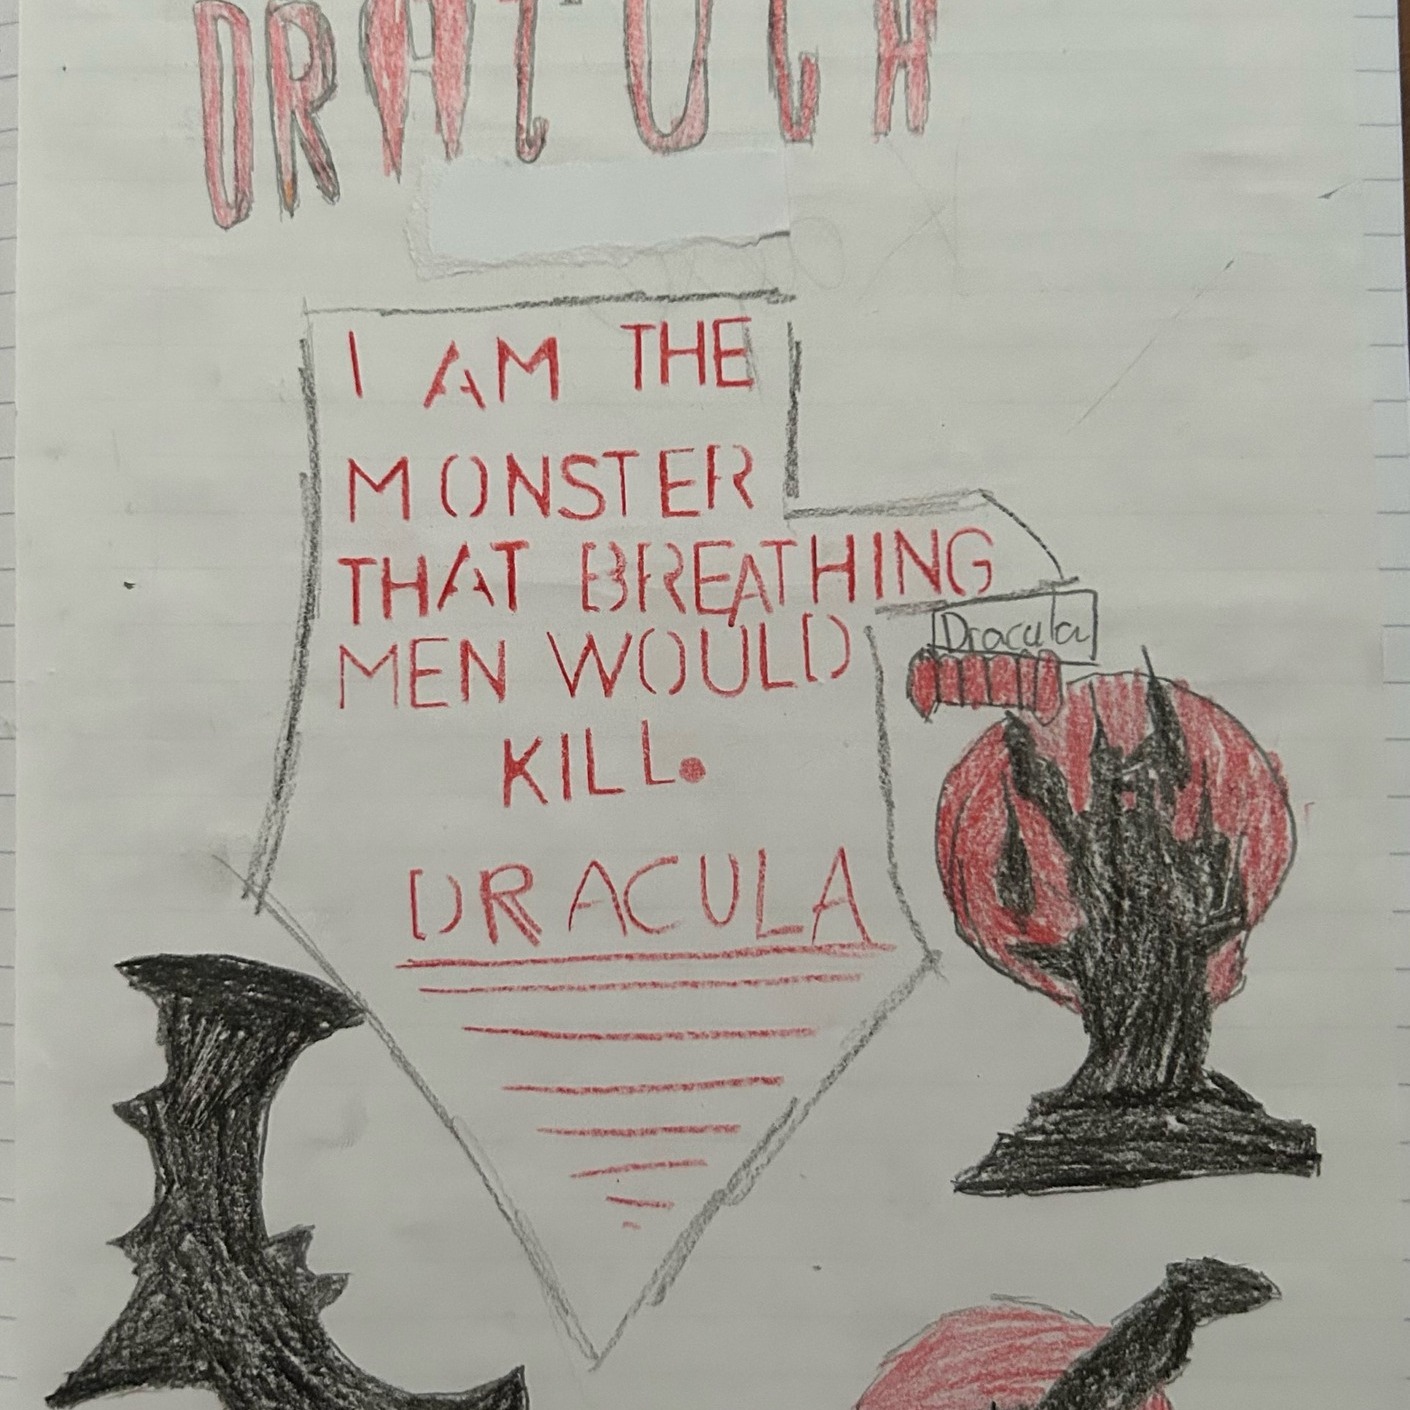 DRACULA
I AM THE
MONSTER
THAT BREATHING
MEN WOULD
KILL.
DRACULA
Dracula